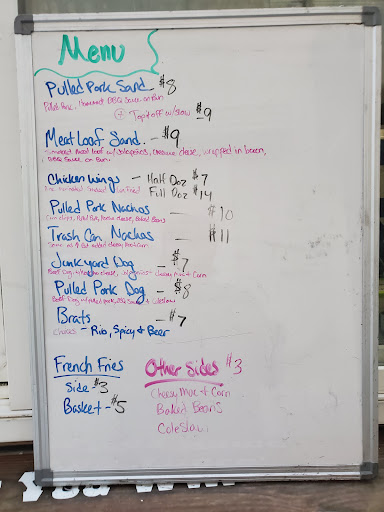 Menu
Pulled Pork Sand $8
Pulled Pork, Homemade BBQ Sauce on Bun
+ Top it off w/slaw $9
Meat Loaf Sand. - $9
Smoked Meat loaf w/ Jalapeños, cheese, wrapped in bacon,
BBQ Sauce on Bun.
Chicken Wings - Half Doz $7
Smoked Fried Full Doz $14
Pulled Pork Nachos - $10
Pulled Pork, Nacho cheese, Baked Beans
Trash Can Nachos - $11
Same as # but added cheesy mac + corn
Junkyard Dog - $7
Beef Dog, w/ cheese, Jalapeños - Cheesy Mac + Corn
Pulled Pork Dog - $8
Beef Dog w/ pulled pork, BBQ Sauce + coleslaw
Brats - $7
- Rib, Spicy & Beer
French Fries
Side $3
Basket - $5
Other Sides $3
Cheesy Mac + Corn
Baked Beans
Coleslaw
You W